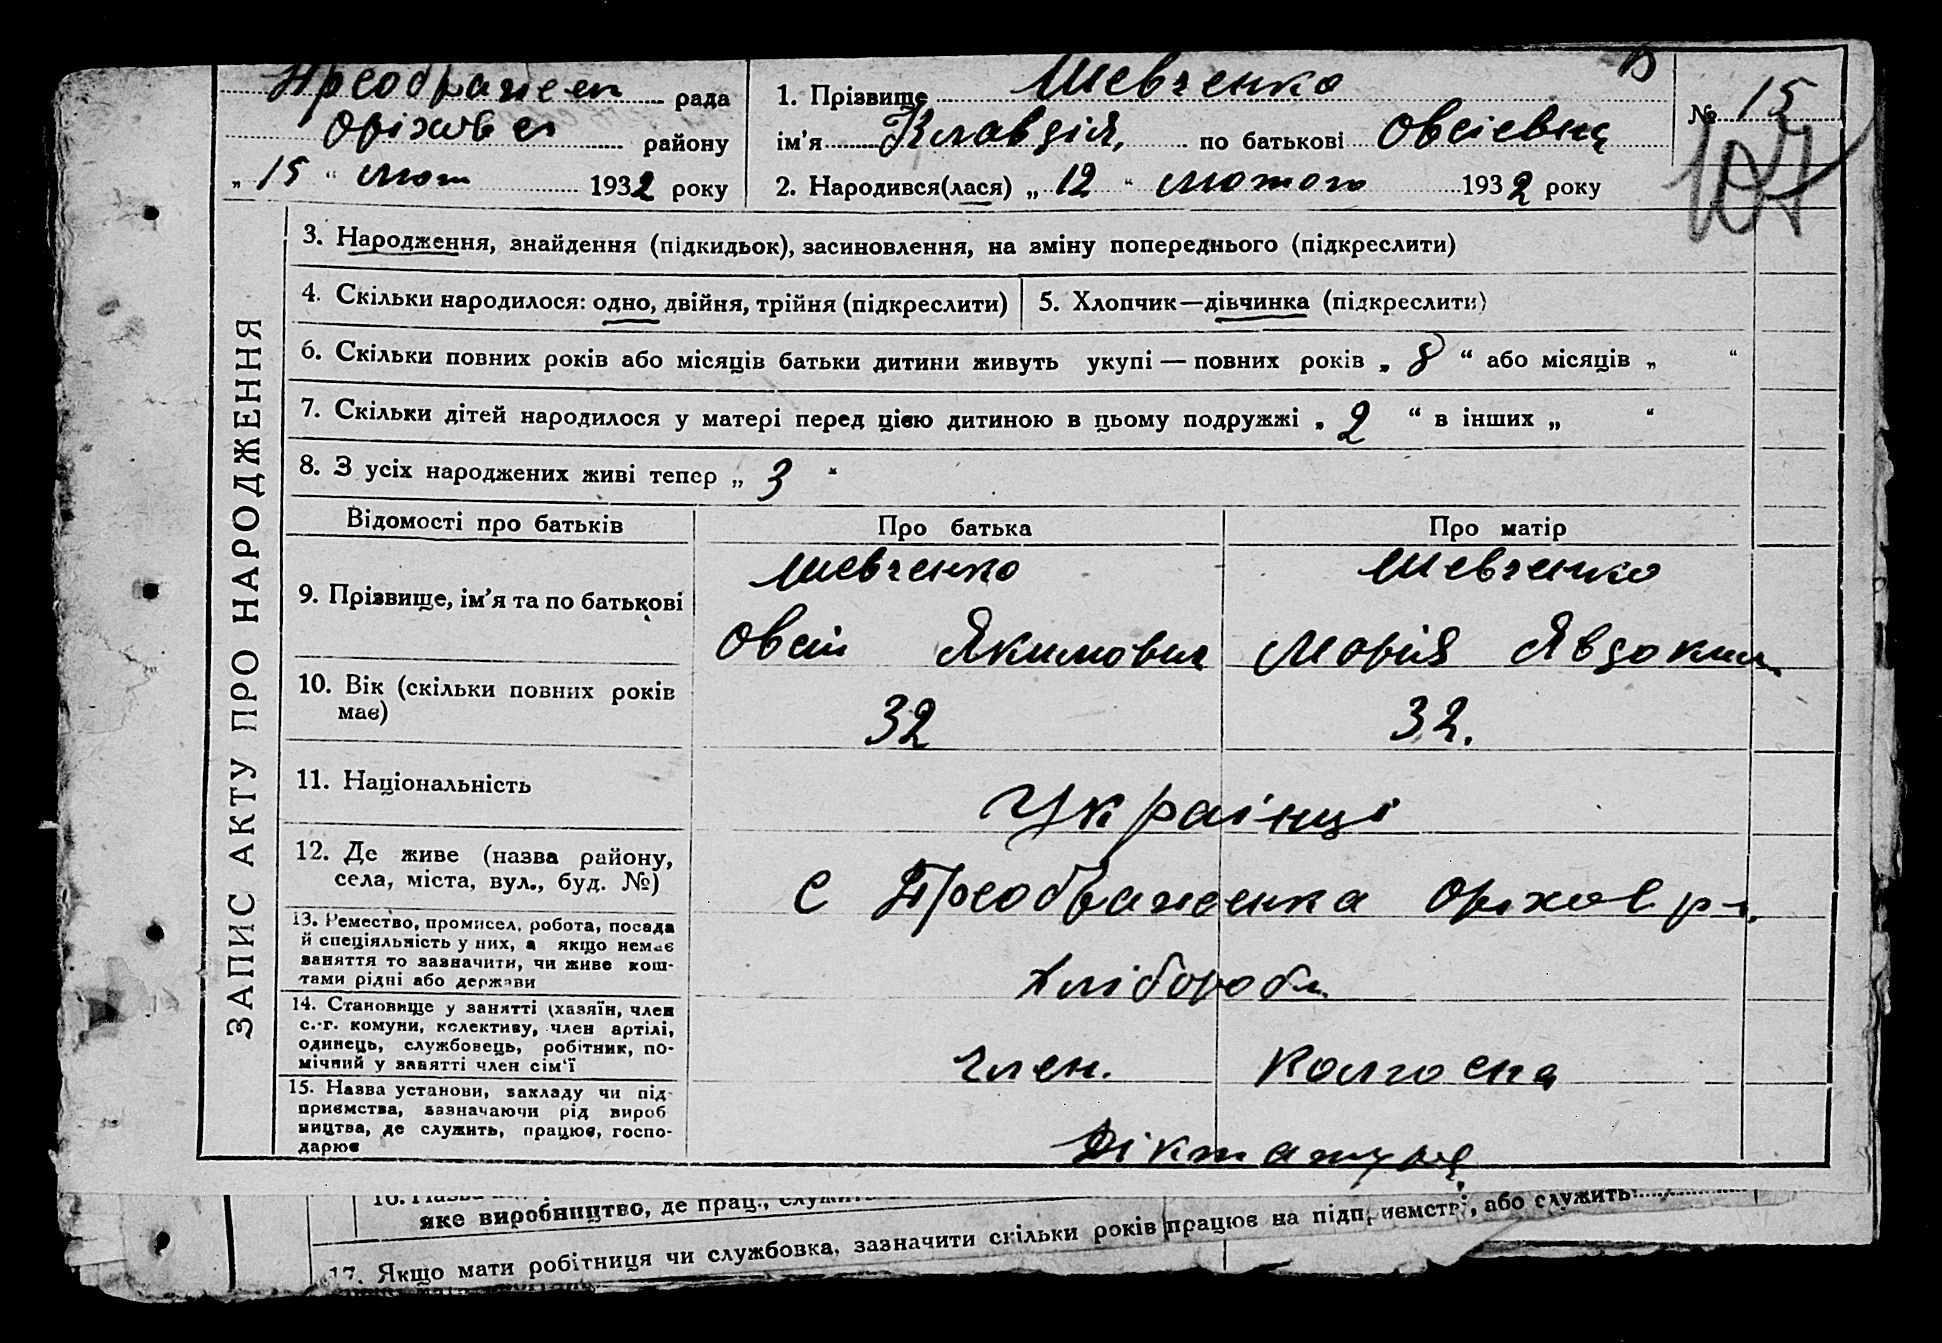 Преображен рада
Оріхов району
„ 15 “ лют 1932 року
1. Прізвище Шевченко
ім’я Клавдія, по батькові Овсіевна
2. Народився(лася) „ 12 “ лютого 1932 року
В
№ 15
107
ЗАПИС АКТУ ПРО НАРОДЖЕННЯ
3. Народження, знайдення (підкидьок), засиновлення, на зміну попереднього (підкреслити)
4. Скільки народилося: одно, двійня, трійня (підкреслити)
5. Хлопчик—дівчинка (підкреслити)
6. Скільки повних років або місяців батьки дитини живуть укупі — повних років „ 8 “ або місяців „ “
7. Скільки дітей народилося у матері перед цією дитиною в цьому подружжі „ 2 “ в інших „ “
8. З усіх народжених живі тепер „ 3 “
Відомості про батьків
Про батька
Про матір
9. Прізвище, ім’я та по батькові
Шевченко
Овсій Якимович
Шевченко
Марія Явдоким
10. Вік (скільки повних років
має)
32
32.
11. Національність
Українці
12. Де живе (назва району,
села, міста, вул., буд. №)
с Преображенка Оріхов р-н.
13. Ремество, промисел, робота, посада
й спеціяльність у них, а якщо немає
заняття то зазначити, чи живе кош-
тами рідні або держави
Хлібороби
14. Становище у занятті (хазяїн, член
с.-г. комуни, колективу, член артілі,
одинець, службовець, робітник, по-
мічний у занятті член сім’ї
член. колгоспа
15. Назва установи, закладу чи під-
приємства, зазначаючи рід вироб
ництва, де служить, працює, госпо-
дарює
Діктатура
яке виробництво, де прац., служить
17. Якщо мати робітниця чи службовка, зазначити скільки років працює на підприємстві, або служить